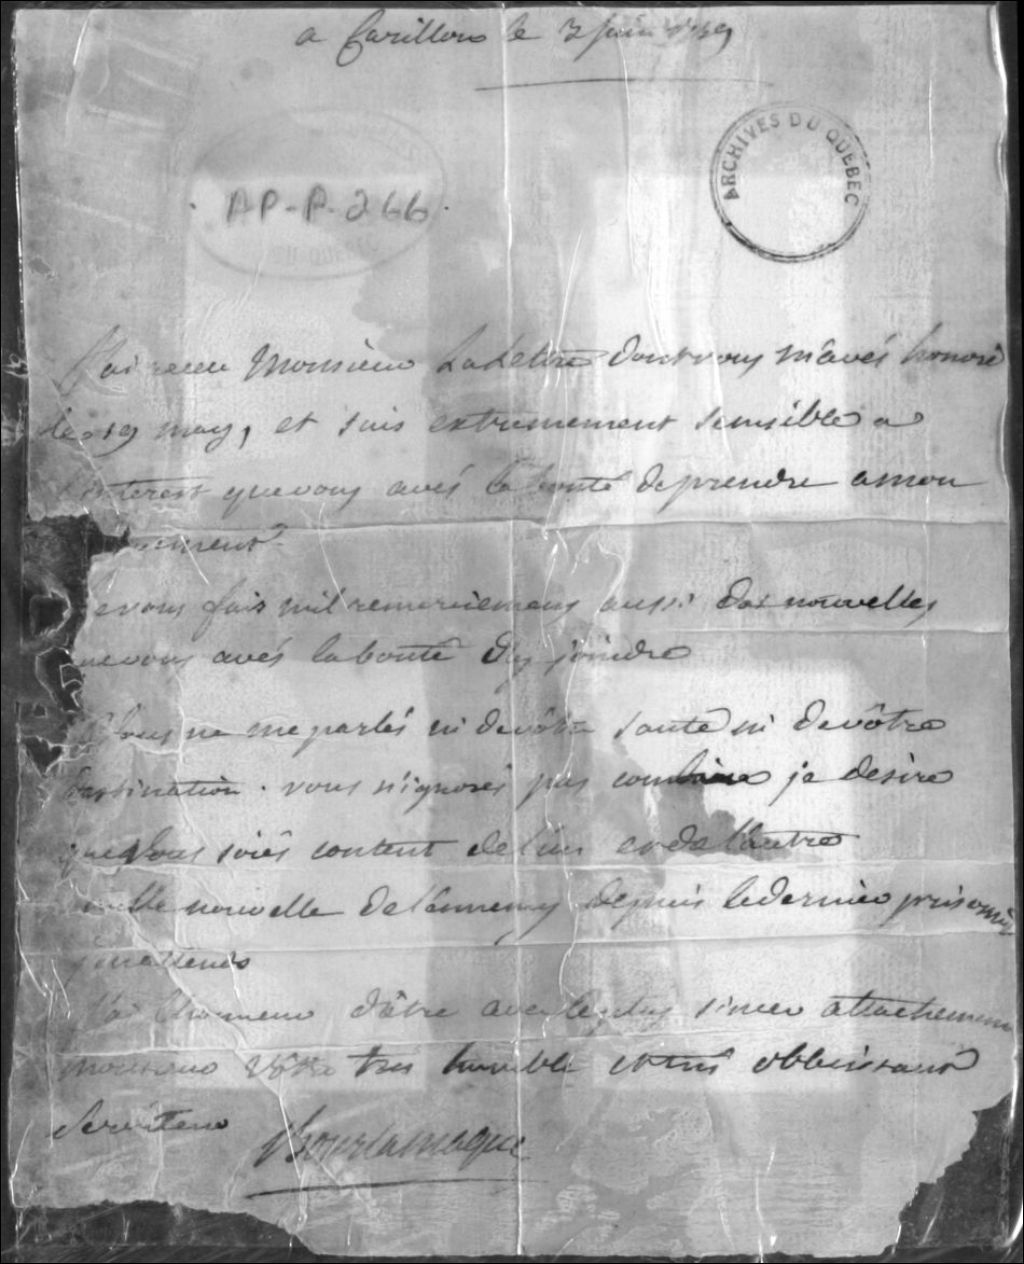 a Carillon le 3 juin 1759
ARCHIVES DU QUEBEC
AP-P-266
DU QUEBEC
J'ai receu Monsieur La Lettre dont vous m'avés honoré
le 19 may, et suis extremement sensible a
interest que vous avés la bonté de prendre a mon
ement
e vous fais mil remerciemens aussi des nouvelles
ue vous avés la bonté d'y joindre
Vous ne me parlés ni de vôtre santé ni de vôtre
destination. vous n'ignorés pas combien je desire
que vous soiés content de l'un et de l'autre
nulle nouvelle de l'ennemy depuis le dernier prisonnier
j'en attends
J'ai l'honneur d'être avec le plus sincer attachement
monsieur vôtre tres humble et tres obbeissant
serviteur Bourlamaque